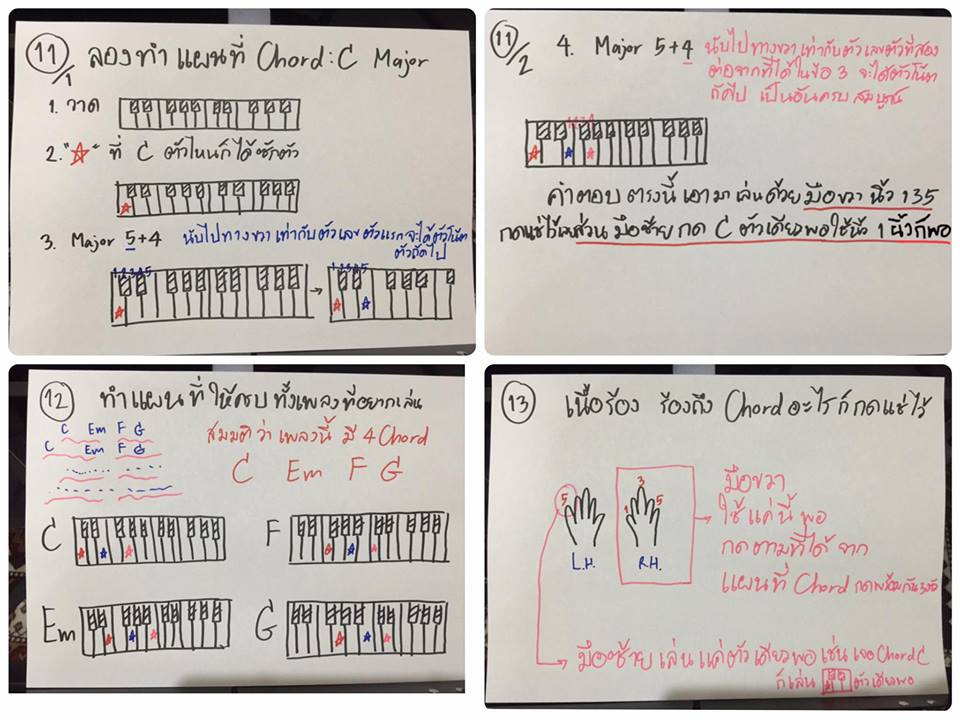 11/1 ลองทำ แผนที่ Chord: C Major
1. วาด
2. "☆" ที่ C ตัวไหนก็ได้ซักตัว
3. Major 5+4 นับไปทางขวา เท่ากับตัวเลข ตัวแรก จะได้ตัวโน้ต
ตัวถัดไป
1 2 3 4 5
1 2 3 4 5
11/2 4. Major 5+4 นับไปทางขวา เท่ากับตัวเลขตัวที่สอง
ต่อจากที่ได้ในข้อ 3 จะได้ตัวโน้ต
ถัดไป เป็นอันครบ สมบูรณ์
คำตอบ ตรงนี้ เอามา เล่นด้วย มือขวา นิ้ว 135
กดแช่ไว้เลย ส่วน มือซ้าย กด C ตัวเดียวพอ ใช้นิ้ว 1 นิ้วก็พอ
12 ทำแผนที่ ให้ครบ ทั้งเพลงที่อยากเล่น
C Em F G
C Em F G
สมมติว่า เพลงนี้ มี 4 Chord
C Em F G
C
F
Em
G
13 เนื้อร้อง ร้องถึง Chord อะไร ก็ กดแช่ไว้
5
L.H.
1 3 5
R.H.
มือขวา
ใช้ แค่นี้ พอ
กดตามที่ได้ จาก
แผนที่ Chord กดพร้อมกัน 3 ตัว
มือซ้าย เล่น แค่ตัวเดียวพอ เช่น เจอ Chord C
ก็เล่น ตัวเดียวพอ